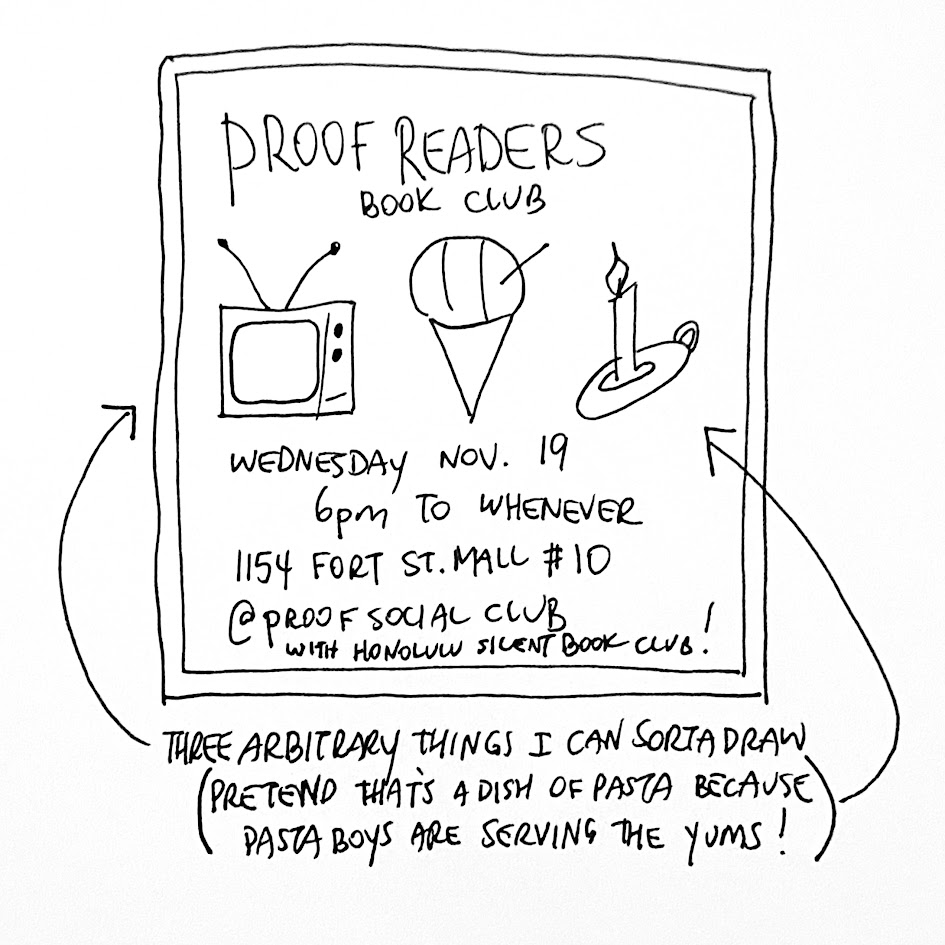 PROOF READERS
BOOK CLUB
WEDNESDAY NOV. 19
6pm TO WHENEVER
1154 FORT ST. MALL #10
@PROOF SOCIAL CLUB
WITH HONOLULU SILENT BOOK CLUB!
THREE ARBITRARY THINGS I CAN SORTA DRAW
(PRETEND THAT'S A DISH OF PASTA BECAUSE
PASTA BOYS ARE SERVING THE YUMS!)